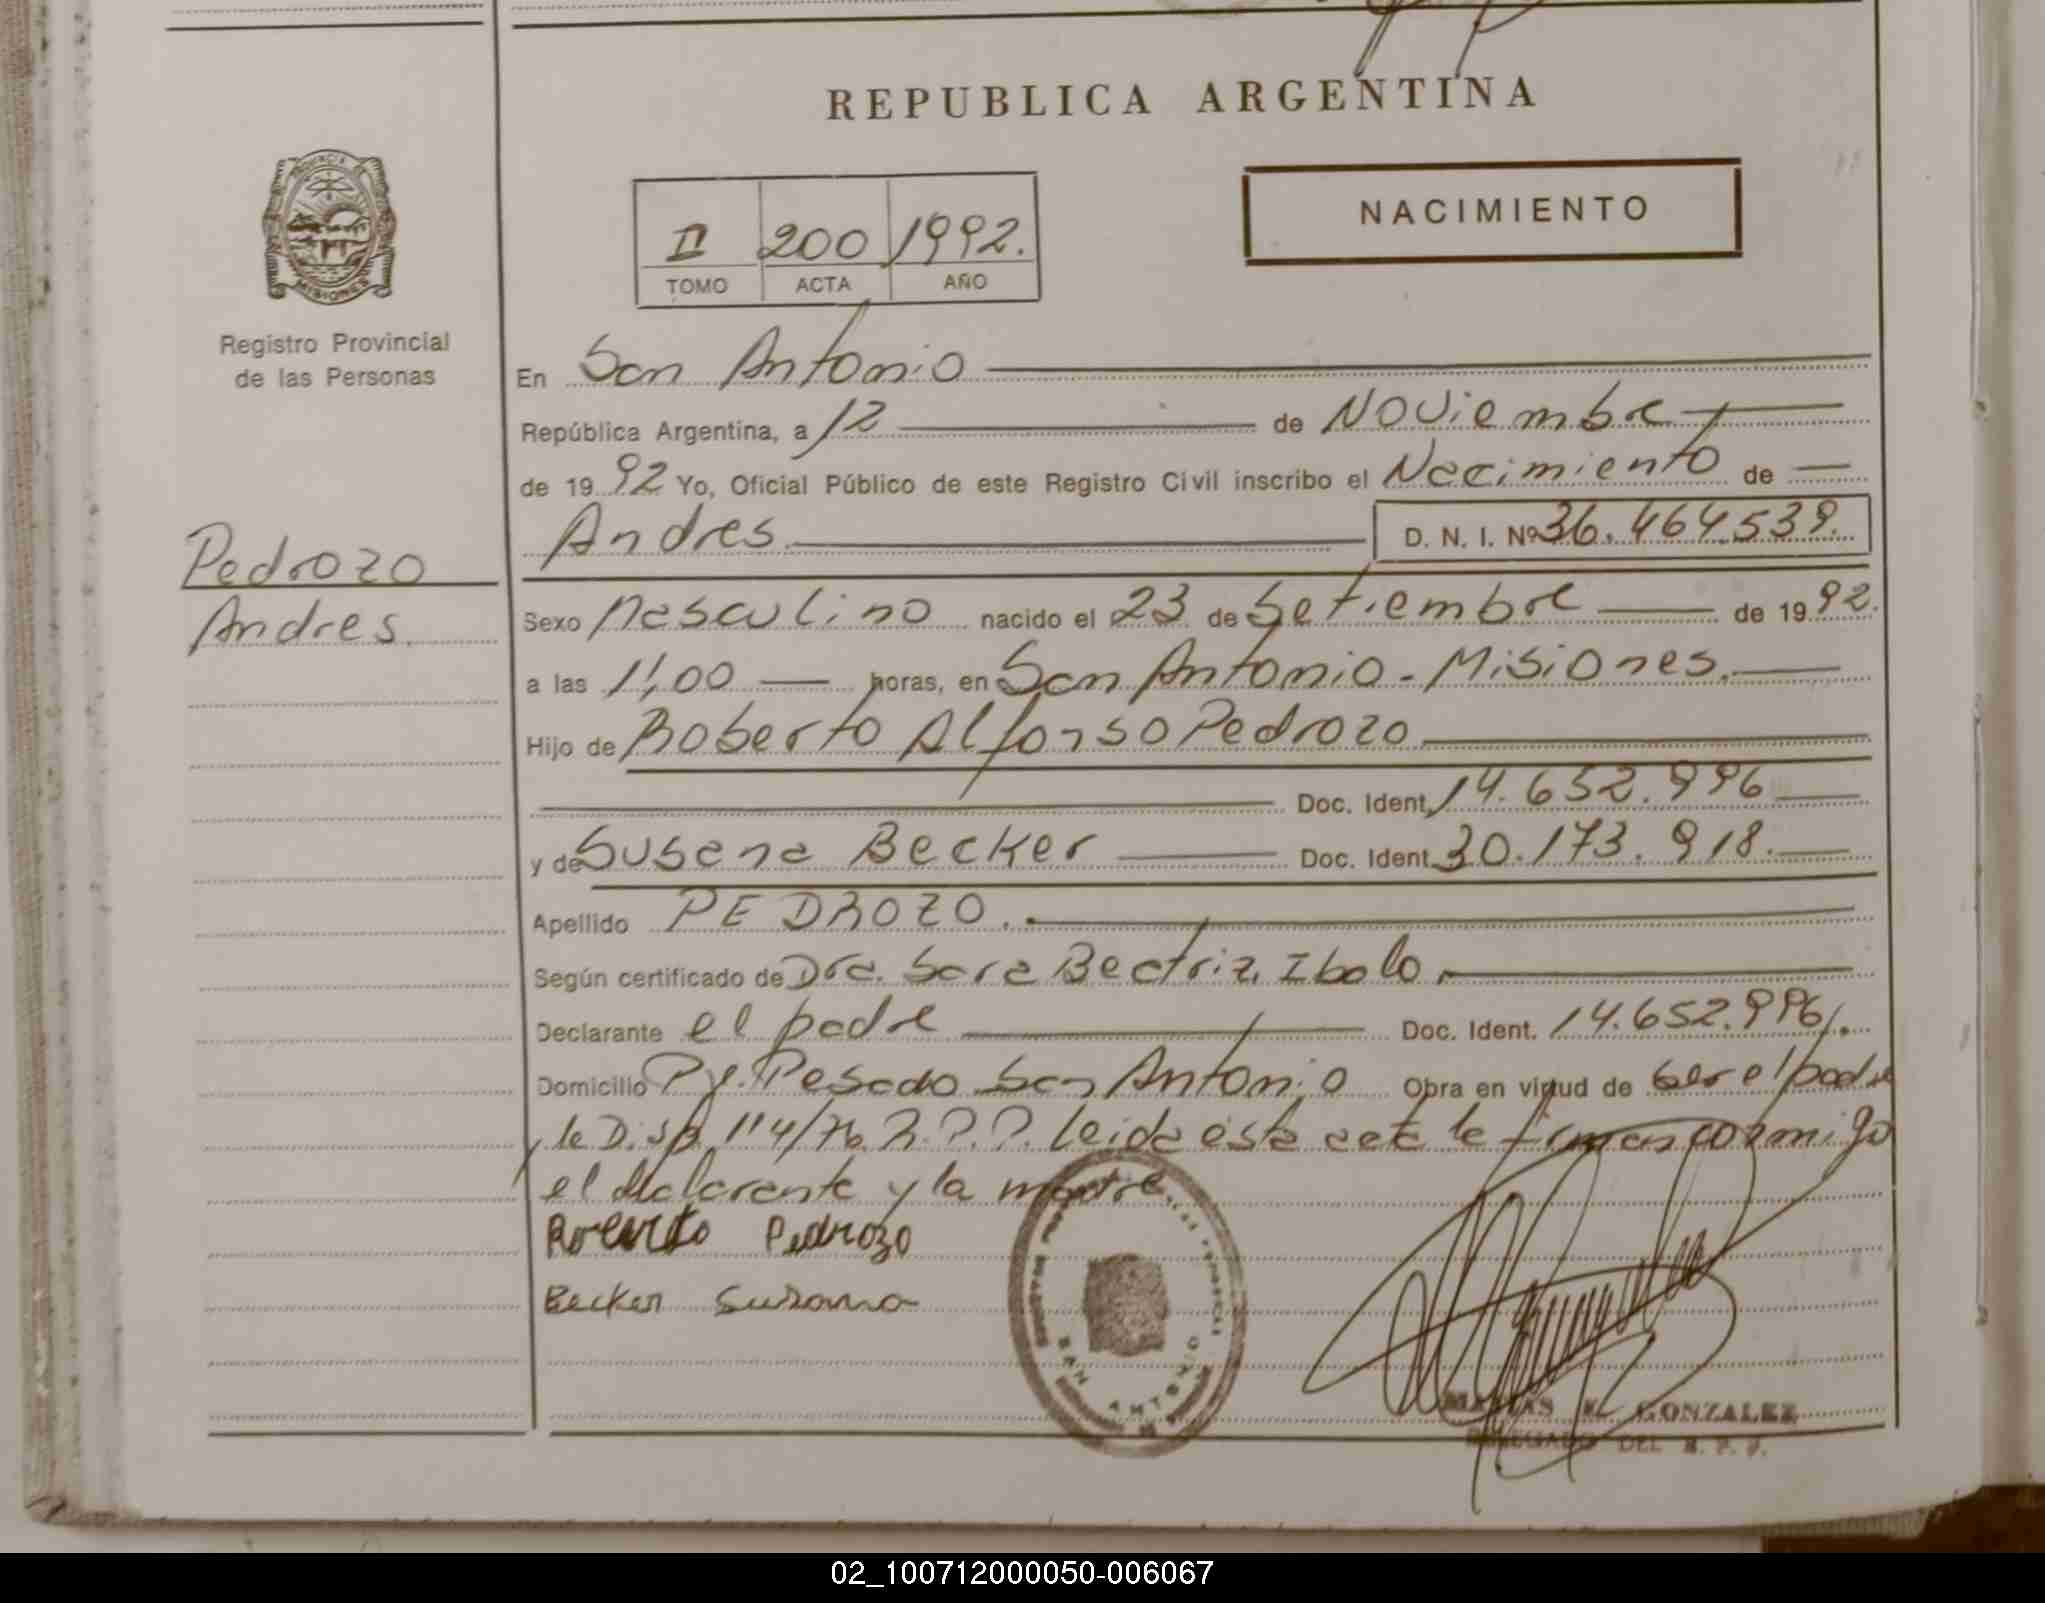 REPUBLICA ARGENTINA
PROVINCIA
MISIONES
Registro Provincial
de las Personas
II 200 1992.
TOMO ACTA AÑO
NACIMIENTO
En San Antonio
República Argentina, a 12 de Noviembre
de 1992 Yo, Oficial Público de este Registro Civil inscribo el Nacimiento de
Pedrozo
Andres.
Andres D. N. I. Nº 36.464.539.
Sexo Masculino nacido el 23 de Setiembre de 1992.
a las 11,00 horas, en San Antonio - Misiones.
Hijo de Roberto Alfonso Pedrozo
Doc. Ident. 14.652.996
y de Susana Becker Doc. Ident. 30.173.918.
Apellido PEDROZO.
Según certificado de Dra. Sara Beatriz Ibalo
Declarante el padre Doc. Ident. 14.652.996
Domicilio Pje. Pesado San Antonio Obra en virtud de ser el padre
y la Disp. 114/76 R.P.P. leida esta acta la firman conmigo
el declarante y la madre.
Roberto Pedrozo
Becker Susana
SAN ANTONIO
MATIAS GONZALEZ
DELEGADO DEL R. P. P.
02_100712000050-006067